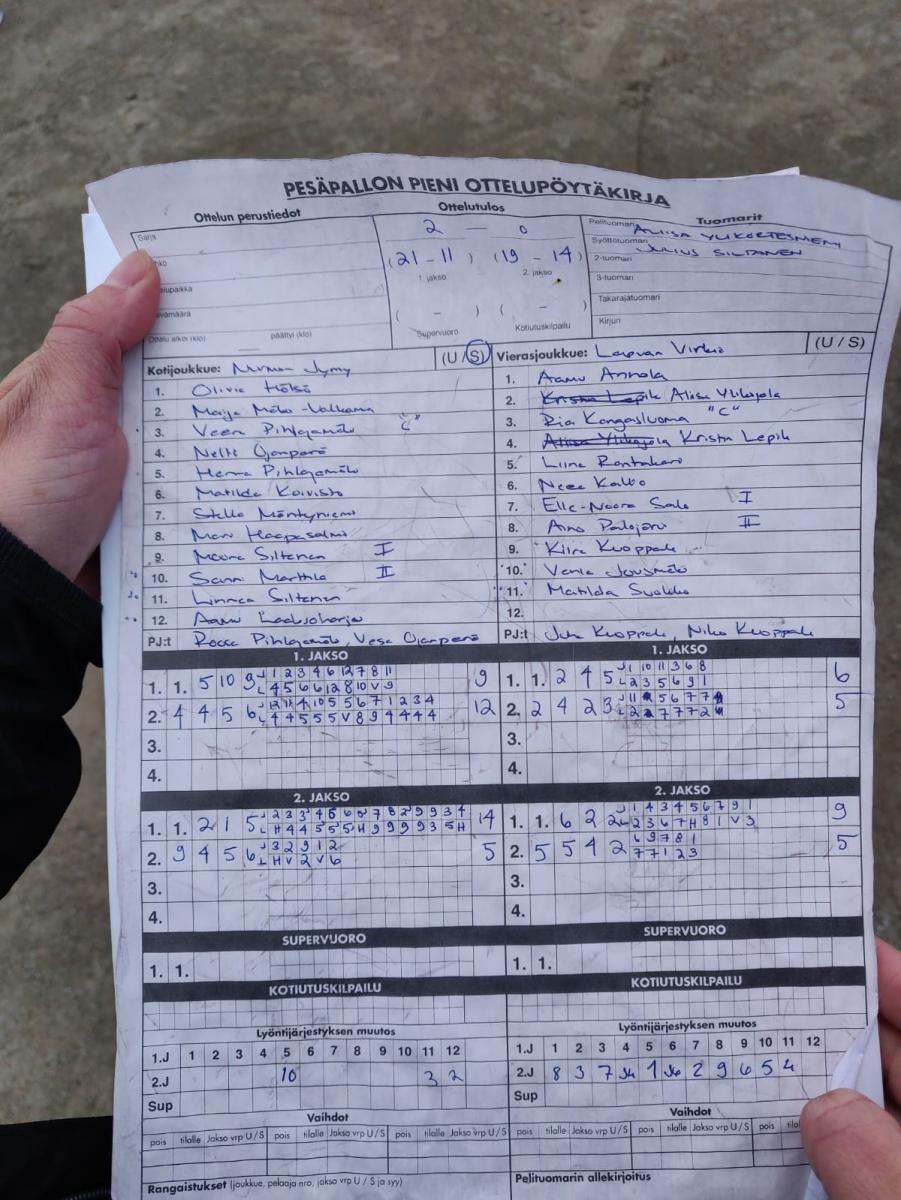 PESÄPALLON PIENI OTTELUPÖYTÄKIRJA
Ottelun perustiedot
Ottelutulos
Tuomarit
Sarja
2 — 0
(21 - 11) (19 - 14)
1. jakso 2. jakso
( - ) ( - )
Supervuoro Kotiutuskilpailu
päättyi (klo)
Pelituomari
Syöttötuomari JULIUS SILTANEN
2-tuomari
3-tuomari
Takarajatuomari
Kirjuri
Kotijoukkue: Nurmon Jymy (U / S)
1. Olivia Hölsö
2. Maija Mäki-Valkama
3. Veera Pihlajamäki "C"
4. Nelli Ojanperä
5. Henna Pihlajamäki
6. Matilda Koivisto
7. Stella Mäntyniemi
8. Mari Haapasalmi
9. Moona Siltanen I
10. Sanni Marttila II
11. Linnea Siltanen
12. Aamu
PJ:t Roosa Pihlajamäki, Vesa Ojanperä
Vierasjoukkue: Lapuan Virkiä (U / S)
1. Aamu Annala
2. Alisa Ylikojola
3. Ria Kangasluoma "C"
4. Krista Lepik
5. Liina Rantakari
6. Neea Kallio
7. Ella-Noora Salo I
8. Aino Palojärvi II
9. Kiira Kuoppala
10. Venla Jousmäki
11. Matilda
12.
PJ:t Juha Kuoppala, Niko Kuoppala
1. JAKSO
1. 1. 5 10 9 J 1 2 3 4 6 12 7 8 11 9
L 4 5 6 6 12 8 10 V 9
2. 4 4 5 6 12 11 4 10 5 5 6 7 1 2 3 4 12
L 4 4 5 5 5 V 8 9 4 4 4 4
3.
4.
1. JAKSO
1. 1. 2 4 5 J 1 10 11 3 6 8 6
L 2 3 5 6 9 1
2. 2 4 2 3 5
3.
4.
2. JAKSO
1. 1. 2 1 5 14
2. 9 4 5 6 J 3 2 9 1 2 5
L H V 2 V 6
3.
4.
2. JAKSO
1. 1. 6 2 2 J 1 4 3 4 5 6 7 9 1 9
L 2 3 6 7 H 8 1 V 3
2. 5 5 4 2 6 9 7 8 1 5
7 7 1 2 3
3.
4.
SUPERVUORO
1. 1.
SUPERVUORO
1. 1.
KOTIUTUSKILPAILU
KOTIUTUSKILPAILU
Lyöntijärjestyksen muutos
1.J 1 2 3 4 5 6 7 8 9 10 11 12
2.J 10 3 2
Sup
Lyöntijärjestyksen muutos
1.J 1 2 3 4 5 6 7 8 9 10 11 12
2.J 8 3 7 1 2 9 6 5 4
Sup
Vaihdot
pois tilalle Jakso vrp U / S pois tilalle Jakso vrp U / S pois tilalle Jakso vrp U / S
Vaihdot
pois tilalle Jakso vrp U / S pois tilalle Jakso vrp U / S pois
Rangaistukset (joukkue, pelaaja nro, jakso vrp U / S ja syy)
Pelituomarin allekirjoitus